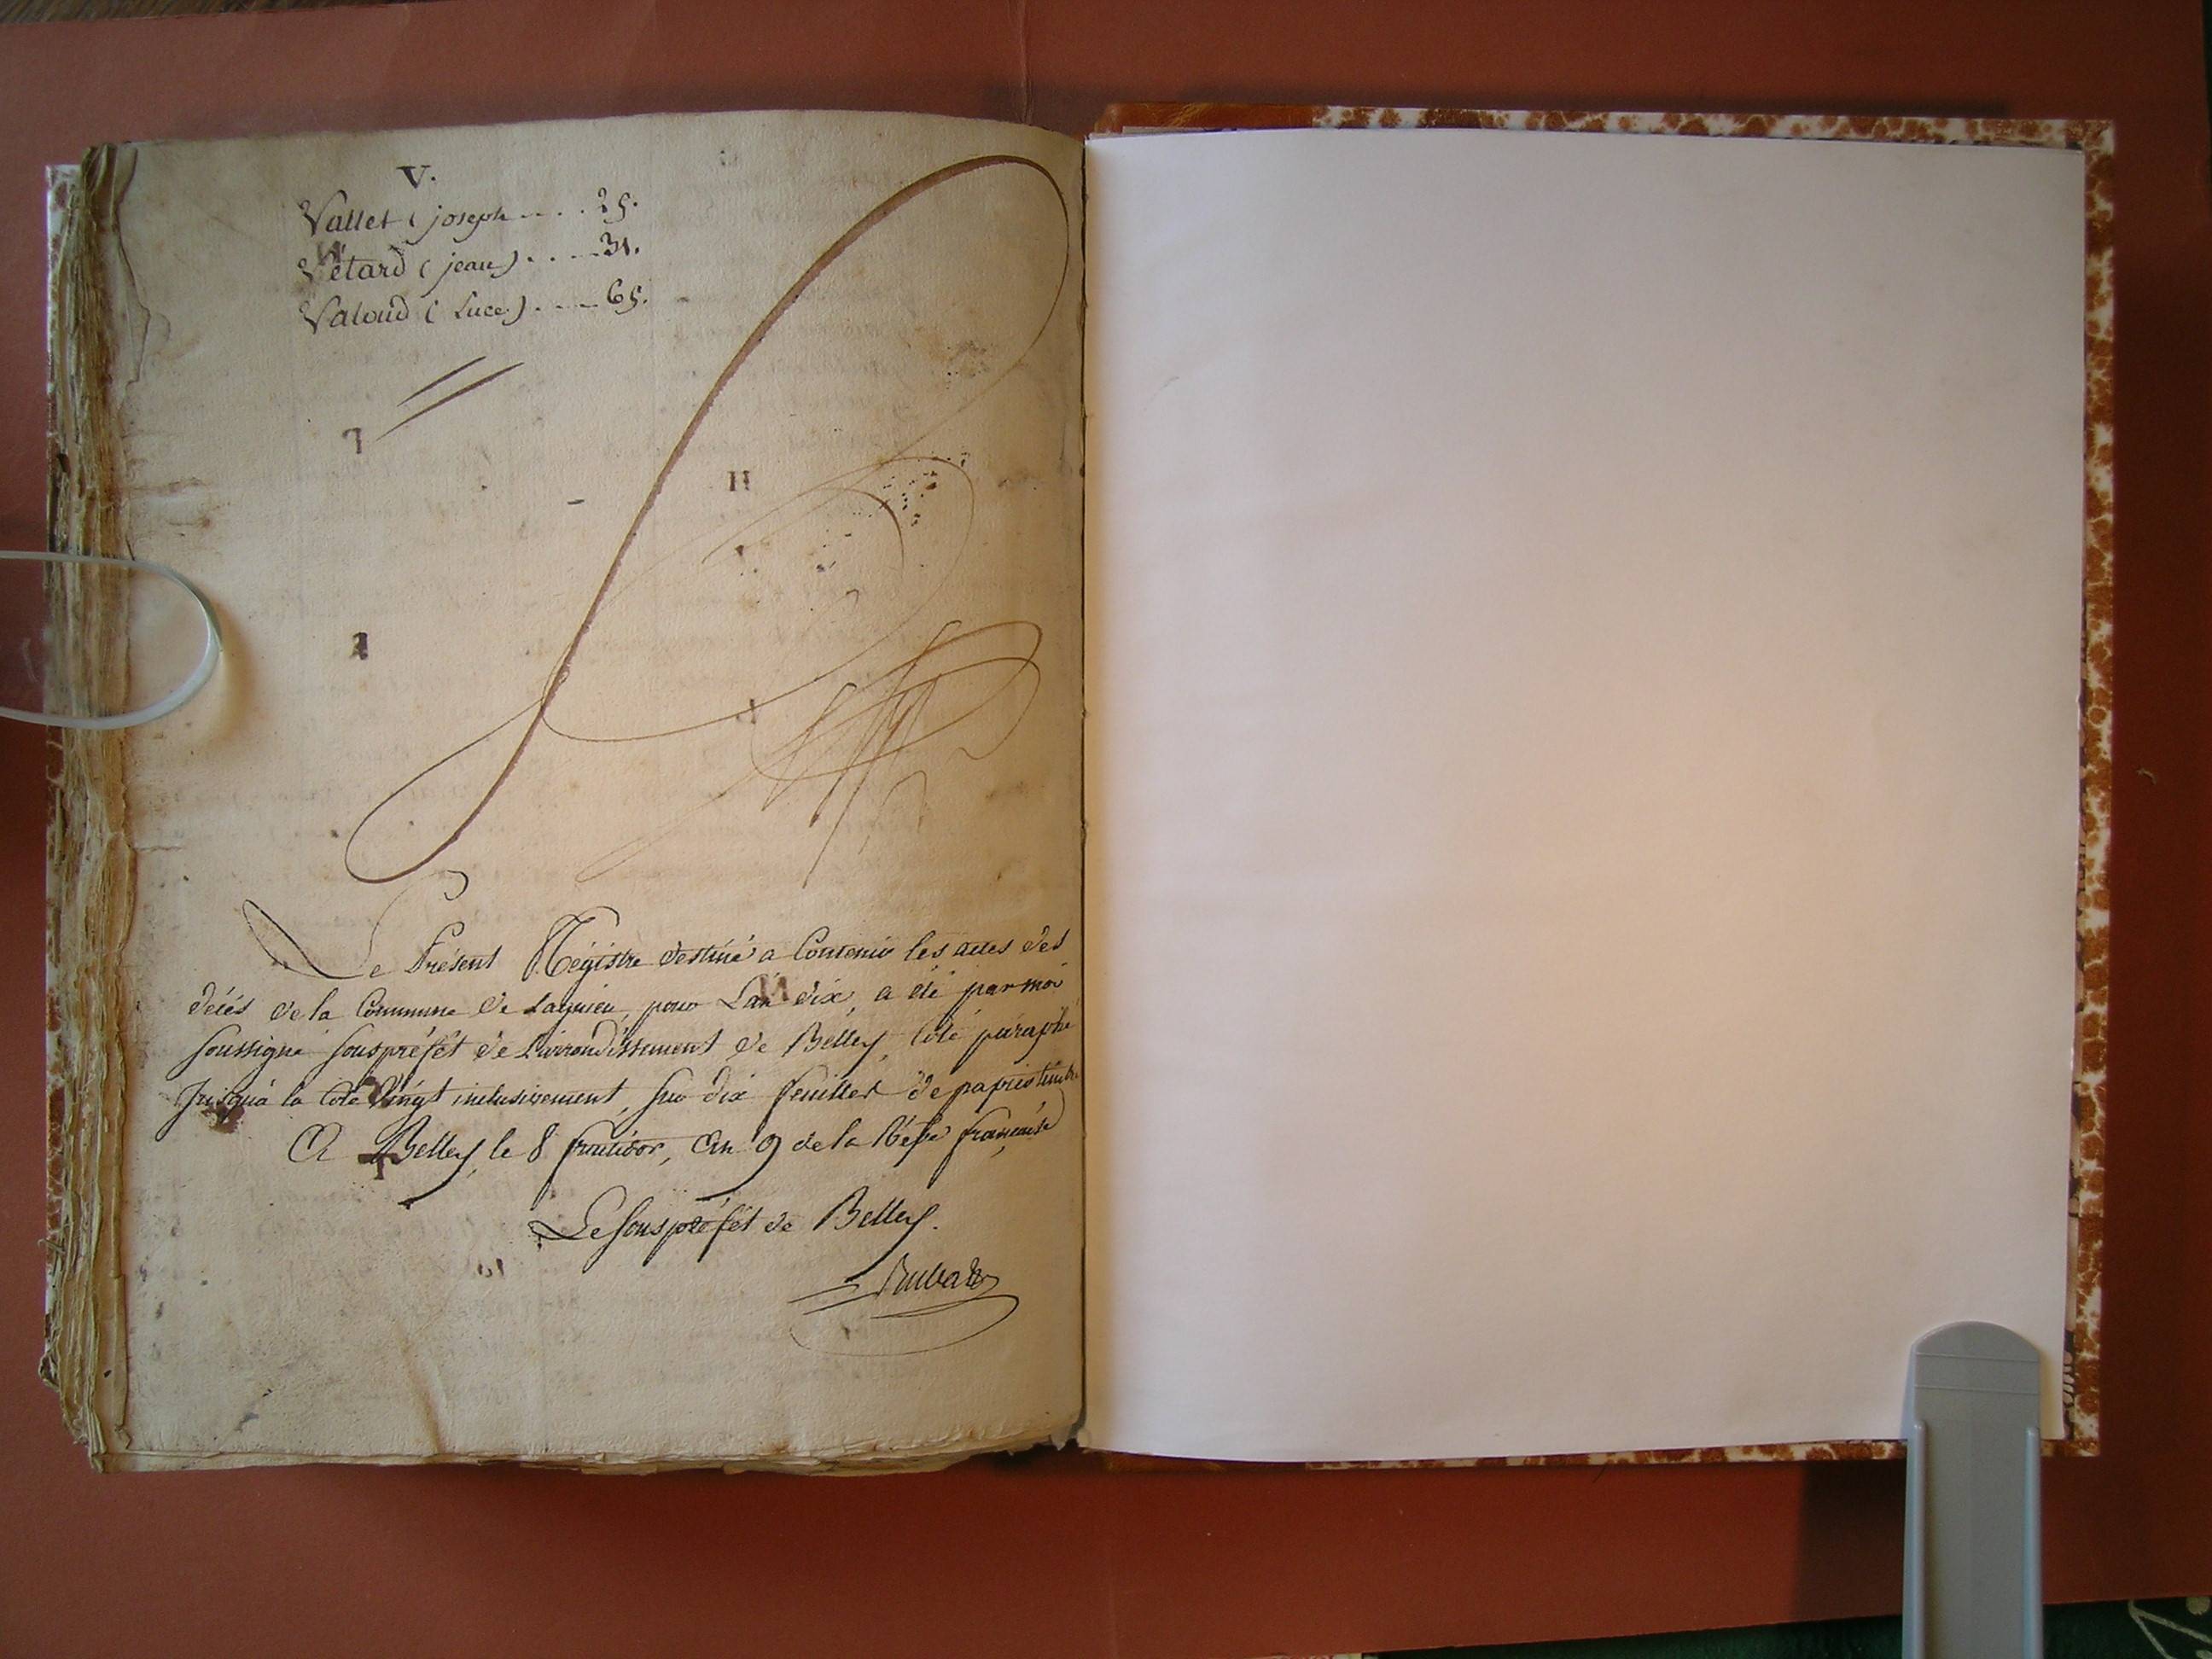 V.
Vallet (joseph .... 25.
Vétard (jean) .... 31.
Valoud (Luce) .... 65.
Le Présent Régistre destiné a Contenir les actes des
décés de la Commune de Lagnieu, pour L'an dix, a été par moi
soussigné souspréfét de L'arrondissement de Belley, Coté paraphé
jusqu'à la Cote Vingt inclusivement, sur dix feuilles de papier timbré
A Belley, le 8 fructidor, An 9 de la Répe française
Le souspréfét de Belley.